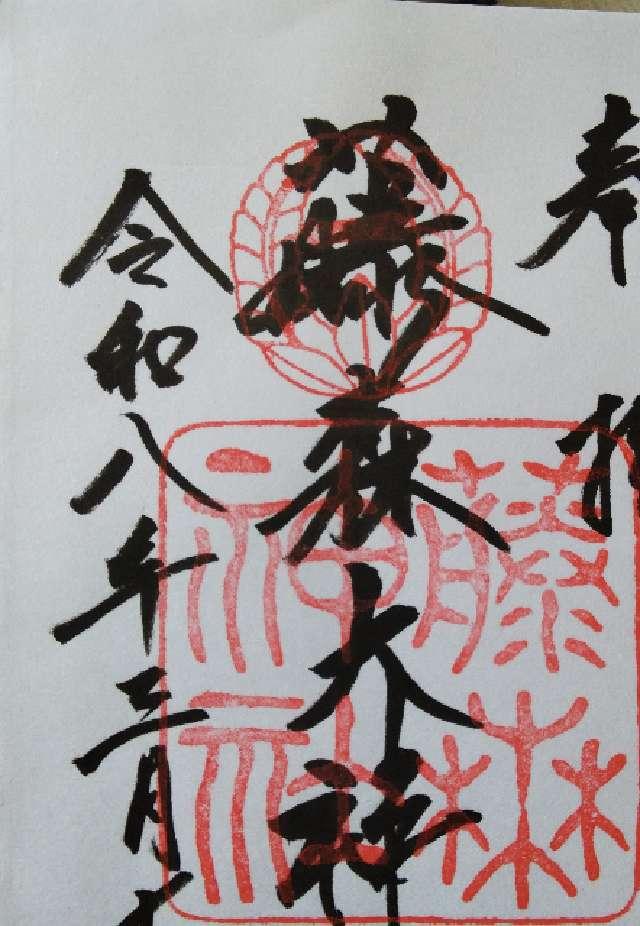 奉拝
藤森大神
令和八年三月
藤森
神社